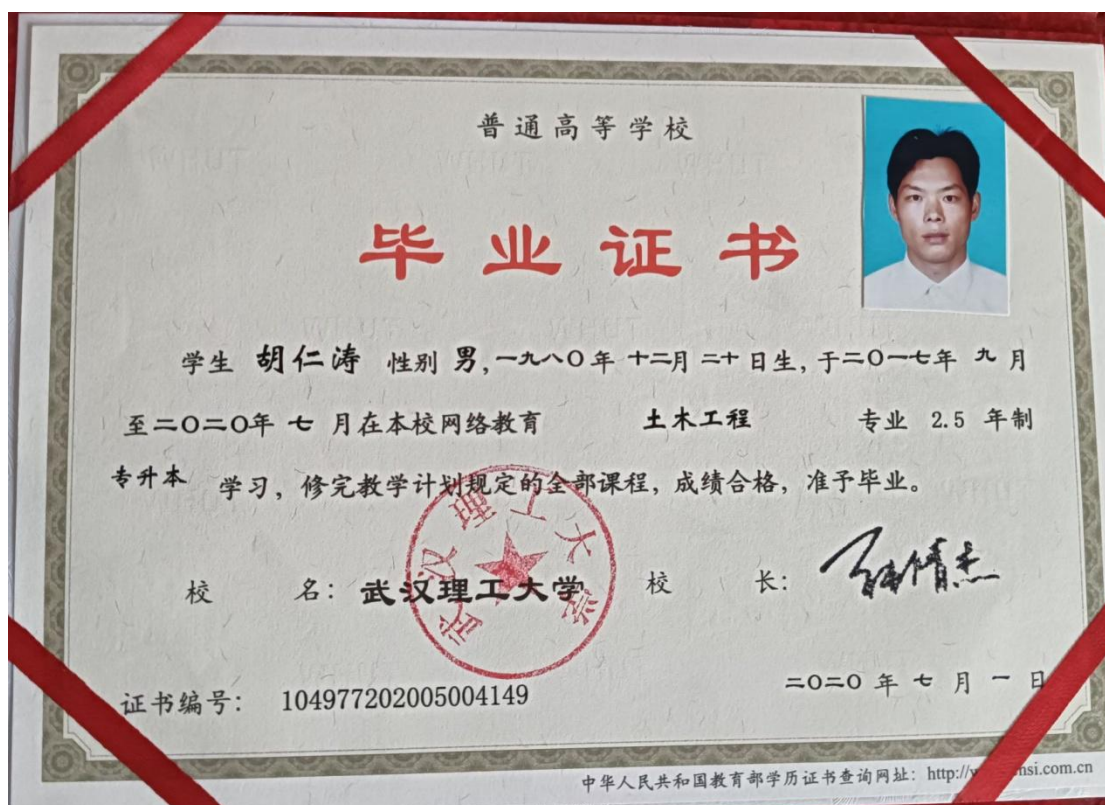 普通高等学校
毕业证书
学生 胡仁涛 性别 男,一九八〇年 十二月 二十 日生,于二〇一七年 九 月
至二〇二〇年 七 月在本校网络教育 土木工程 专业 2.5 年制
专升本 学习,修完教学计划规定的全部课程,成绩合格,准予毕业。
校 名:武汉理工大学 校 长:
武汉理工大学
二〇二〇 年 七 月 一 日
证书编号: 104977202005004149
中华人民共和国教育部学历证书查询网址:http://
si.com.cn